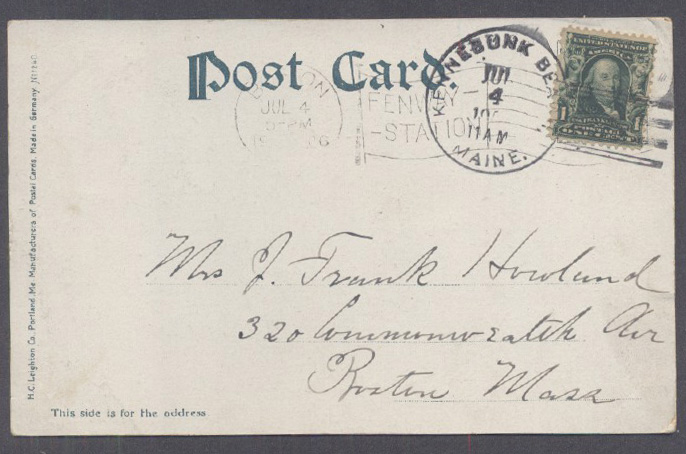 Post Card
BOSTON
JUL 4
FENWAY
-STATION-
KENNEBUNK BE
JUL
4
11 AM
MAINE.
UNITED STATES OF AMERICA
1 1
FRANKLIN
POSTAGE
ONE
Mrs J. Frank Howland
320 Commonwealth Ave
Boston Mass
This side is for the address.
H.C. Leighton Co., Portland, Me. Manufacturers of Postal Cards. Made in Germany